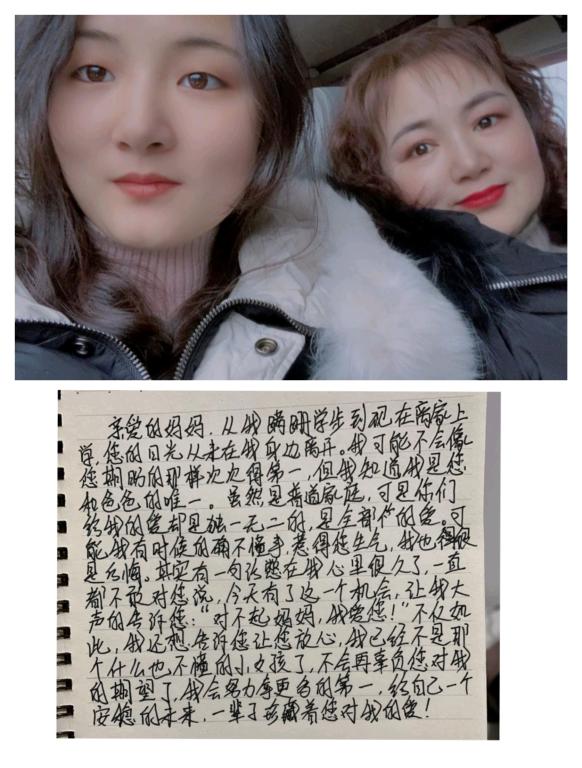 亲爱的妈妈，从我蹒跚学步到现在离家上
学，您的目光从未在我身边离开。我可能不会像
您期盼的那样次次得第一，但我知道我是您
和爸爸的唯一。虽然是普通家庭，可是你们
给我的爱却是独一无二的，是全部的爱。可
能我有时候的确不懂事，惹得您生气，我也很
是后悔。其实有一句话憋在我心里很久了，一直
都不敢对您说，今天有了这一个机会，让我大
声的告诉您：“对不起妈妈，我爱您！”不仅如
此，我还想告诉您让您放心，我已经不是那
个什么也不懂的小女孩了，不会再辜负您对我
的期望了，我会努力争更多的第一，给自己一个
安稳的未来，一辈子珍藏着您对我的爱！